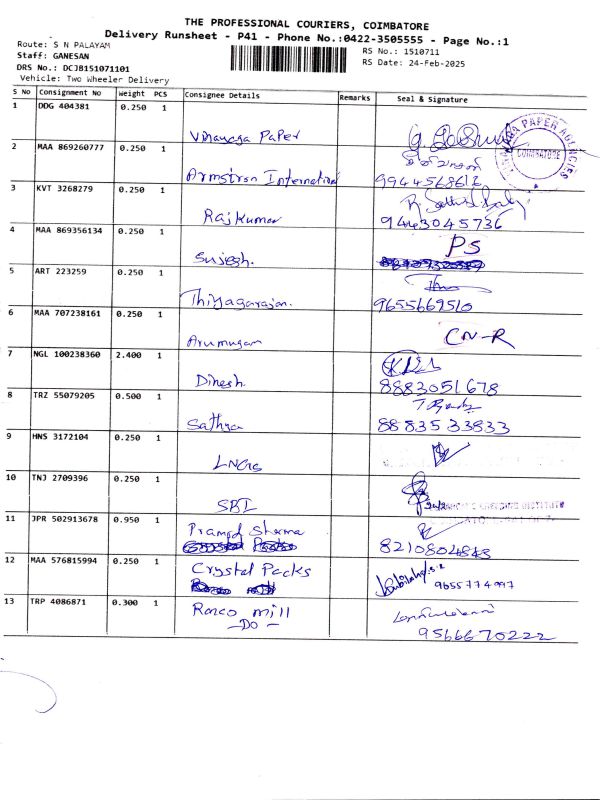 THE PROFESSIONAL COURIERS, COIMBATORE
Delivery Runsheet - P41 - Phone No.:0422-3505555 - Page No.:1
Route: S N PALAYAM
RS No.: 1510711
Staff: GANESAN
RS Date: 24-Feb-2025
DRS No.: DCJB151071101
Vehicle: Two Wheeler Delivery
S No Consignment No Weight PCS Consignee Details Remarks Seal & Signature
1 DDG 404381 0.250 1
Vinayaga Paper
PAPER AGENCIES
COIMBATORE
2 MAA 869260777 0.250 1
Armstron International 9944568612
3 KVT 3268279 0.250 1
Rajkumar 9443045736
4 MAA 869356134 0.250 1
PS
Sujesh.
5 ART 223259 0.250 1
Thiyagarajan. 9655669510
6 MAA 707238161 0.250 1
CN-R
Arumugam
7 NGL 100238360 2.400 1
Dinesh 8883051678
8 TRZ 55079205 0.500 1
Sathya 8883533833
9 HNS 3172104 0.250 1
10 TNJ 2709396 0.250 1
SBI
11 JPR 502913678 0.950 1
Pramod Sharma
8210804848
12 MAA 576815994 0.250 1
Crystal Packs
9655774997
13 TRP 4086871 0.300 1
Ranco mill
-DO-
9566670222